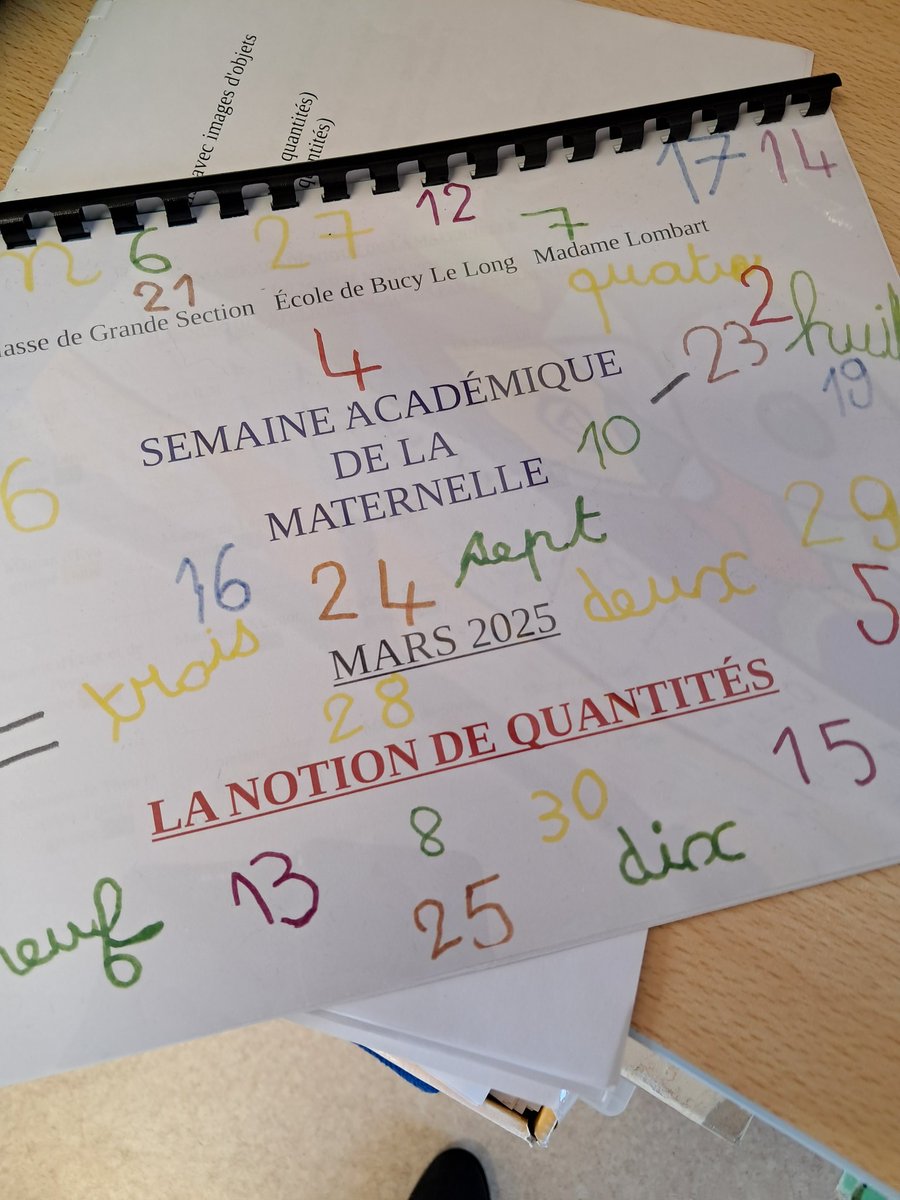 avec images d'objets
quantités)
17 14
12
27
7
6
21
lasse de Grande Section École de Bucy Le Long Madame Lombart
quatre
2
huit
4
- 23
19
SEMAINE ACADÉMIQUE
DE LA
MATERNELLE
10
6
29
sept
16
24
deux
5
trois
MARS 2025
28
=
LA NOTION DE QUANTITÉS
15
30
8
dix
13
25
neuf